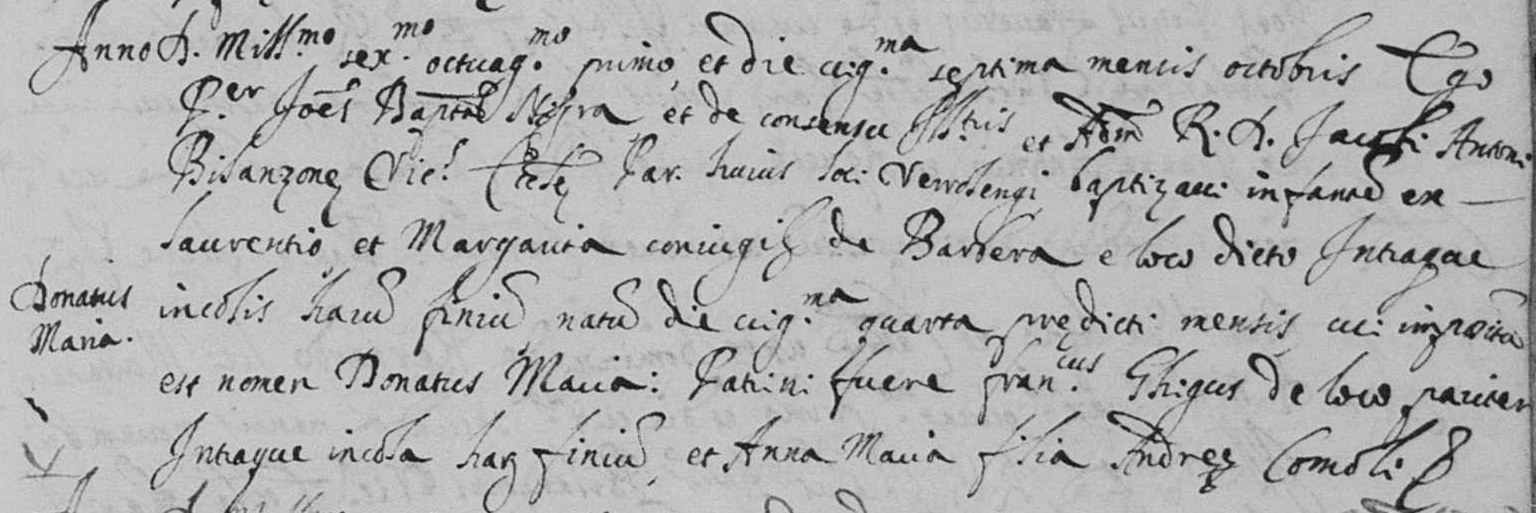 Anno D. Mill.mo sex.mo octuag.mo primo, et die vig.ma septima mensis octobris Ego
P.er Joes Bapta Nigra et de consensu Ill.tris et Adm R. D. Jacobi Antoni
Bisanzonę Vic. Eccle Par. huius loci Verrolengi baptizavi infante ex
Laurentio et Margarita coniugib de Barbera e loco dicto Intraque
Donatus Maria.
incolis haru finiu natu die vig.ma quarta prędicti mensis cui impositu
est nomen Donatus Maria: Patrini fuere Fran.cus Ghigus de loco pariter
Intraque incola har finiu, et Anna Maria filia Andreę Comoli